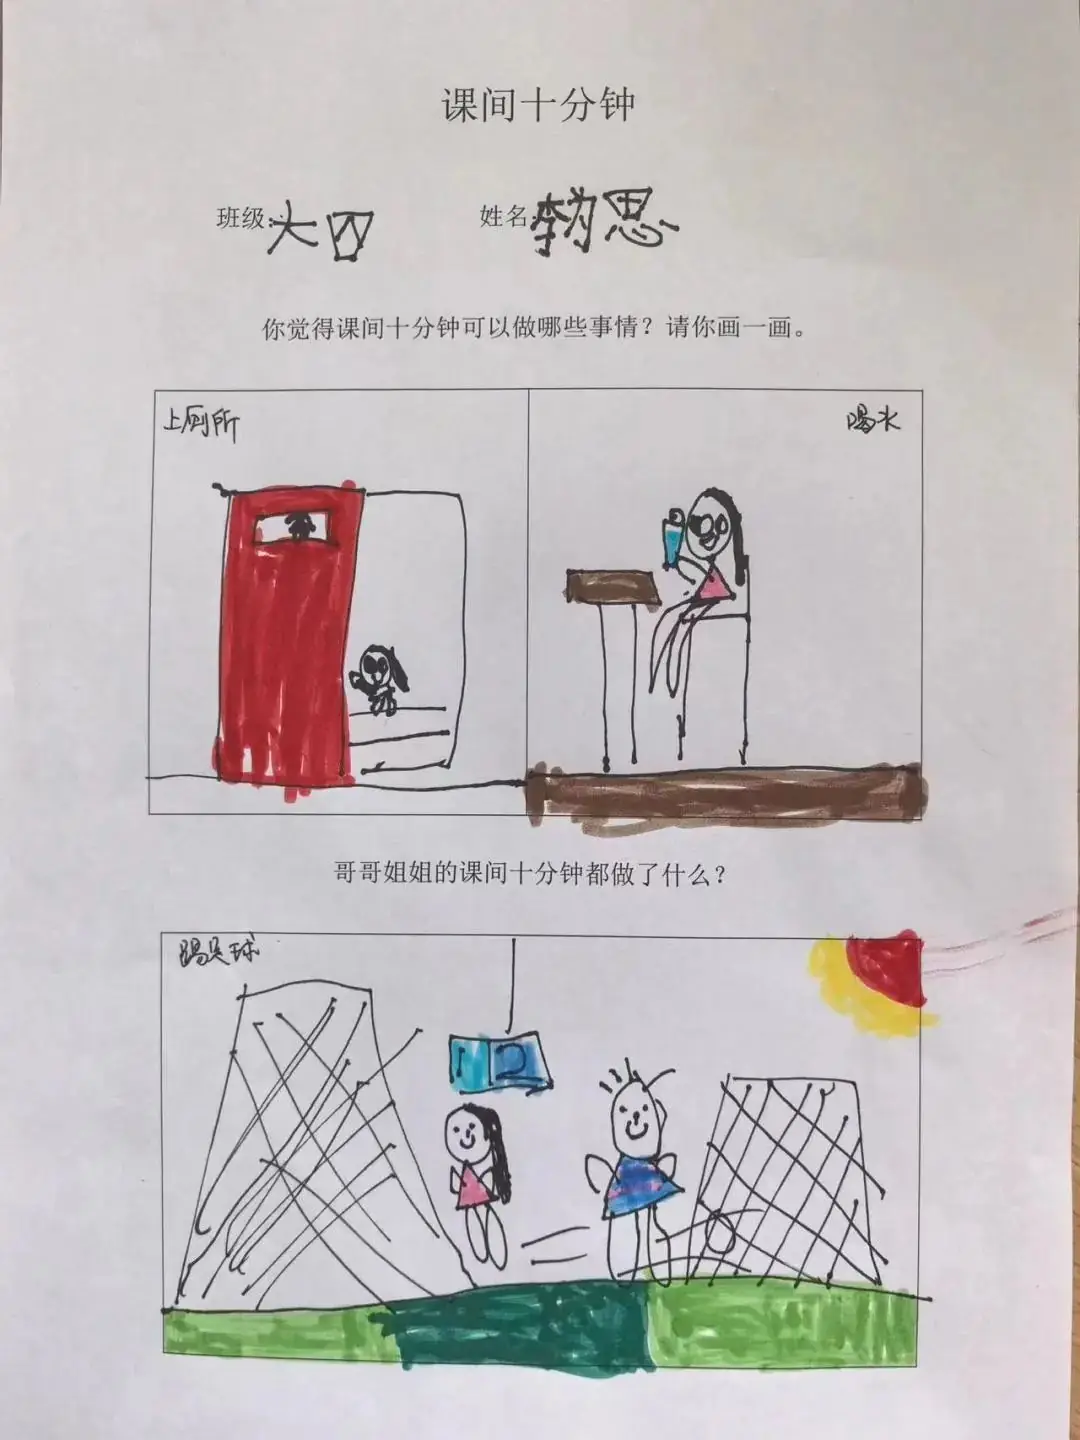 课间十分钟
班级:大四 姓名:李為思
你觉得课间十分钟可以做哪些事情？请你画一画。
上厕所 喝水
哥哥姐姐的课间十分钟都做了什么？
踢足球
1 2